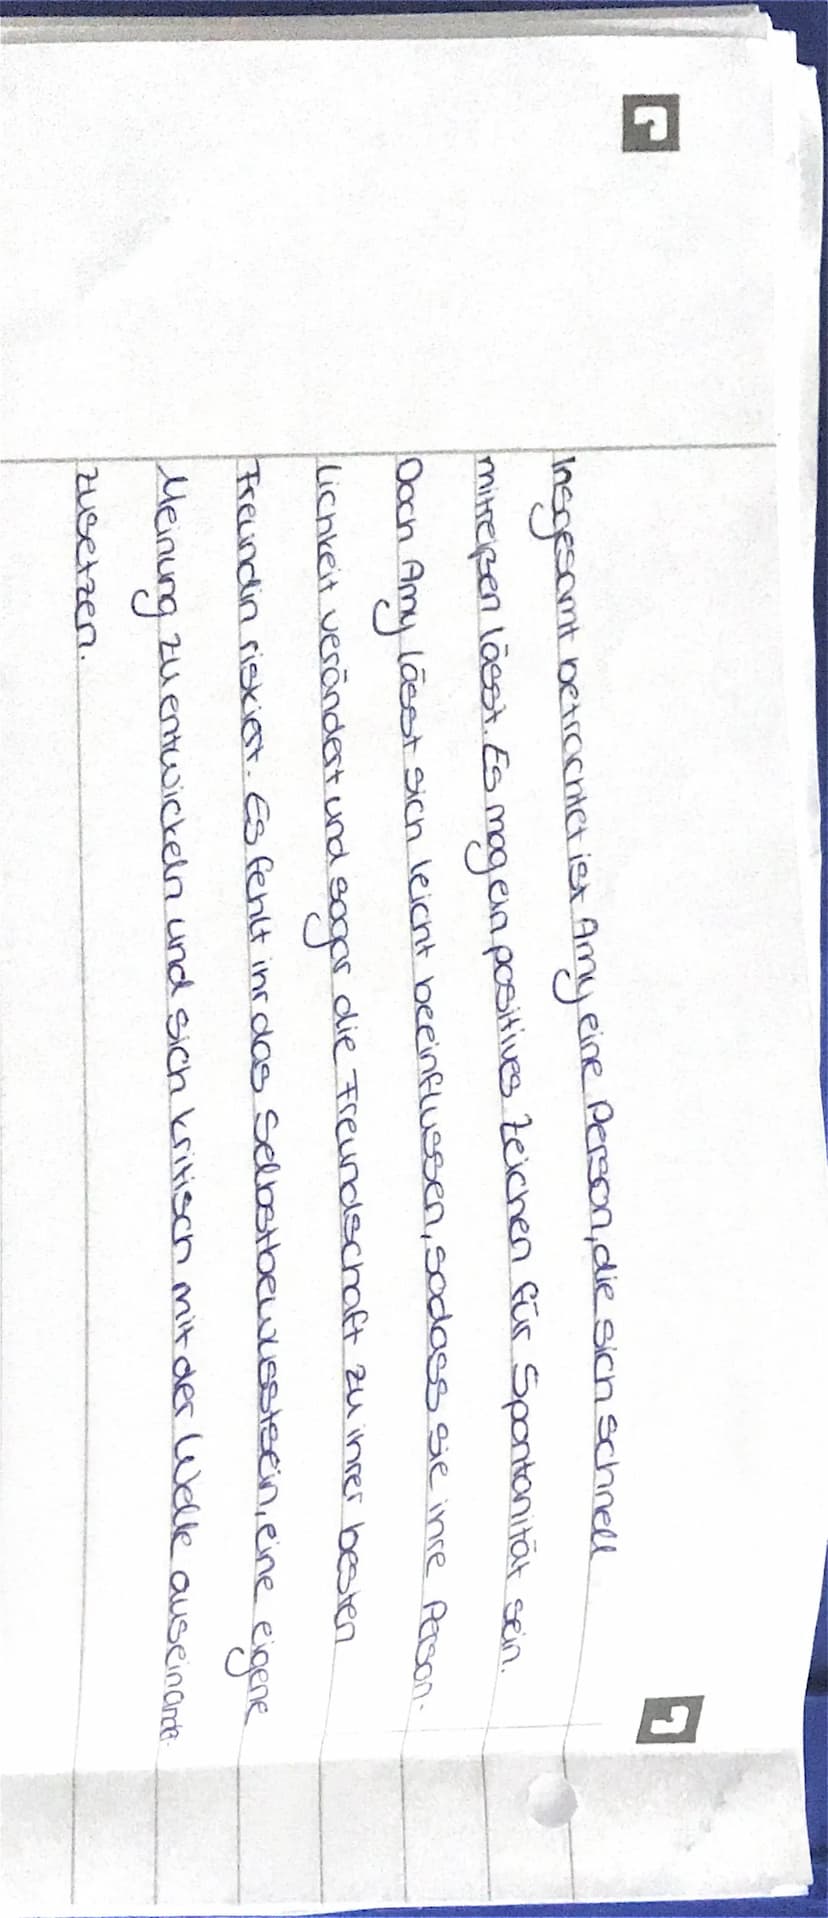 Insgesamt betrachtet ist Amy eine Person, die sich schnell
mitreißen lässt. Es mag ein positives Zeichen für Spontanität sein.
Doch Amy lässt sich leicht beeinflussen, sodass sie ihre Person-
lichkeit verändert und sogar die Freundschaft zu ihrer besten
Freundin riskiert. Es fehlt ihr das Selbstbewusstsein, eine eigene
Meinung zu entwickeln und sich kritisch mit der Welle auseinander-
zusetzen.